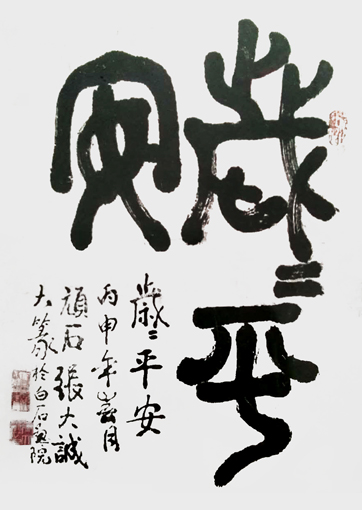 歲〻平
安
歲〻平安
丙申年春月
頑石張大誠
大篆於白石畫院